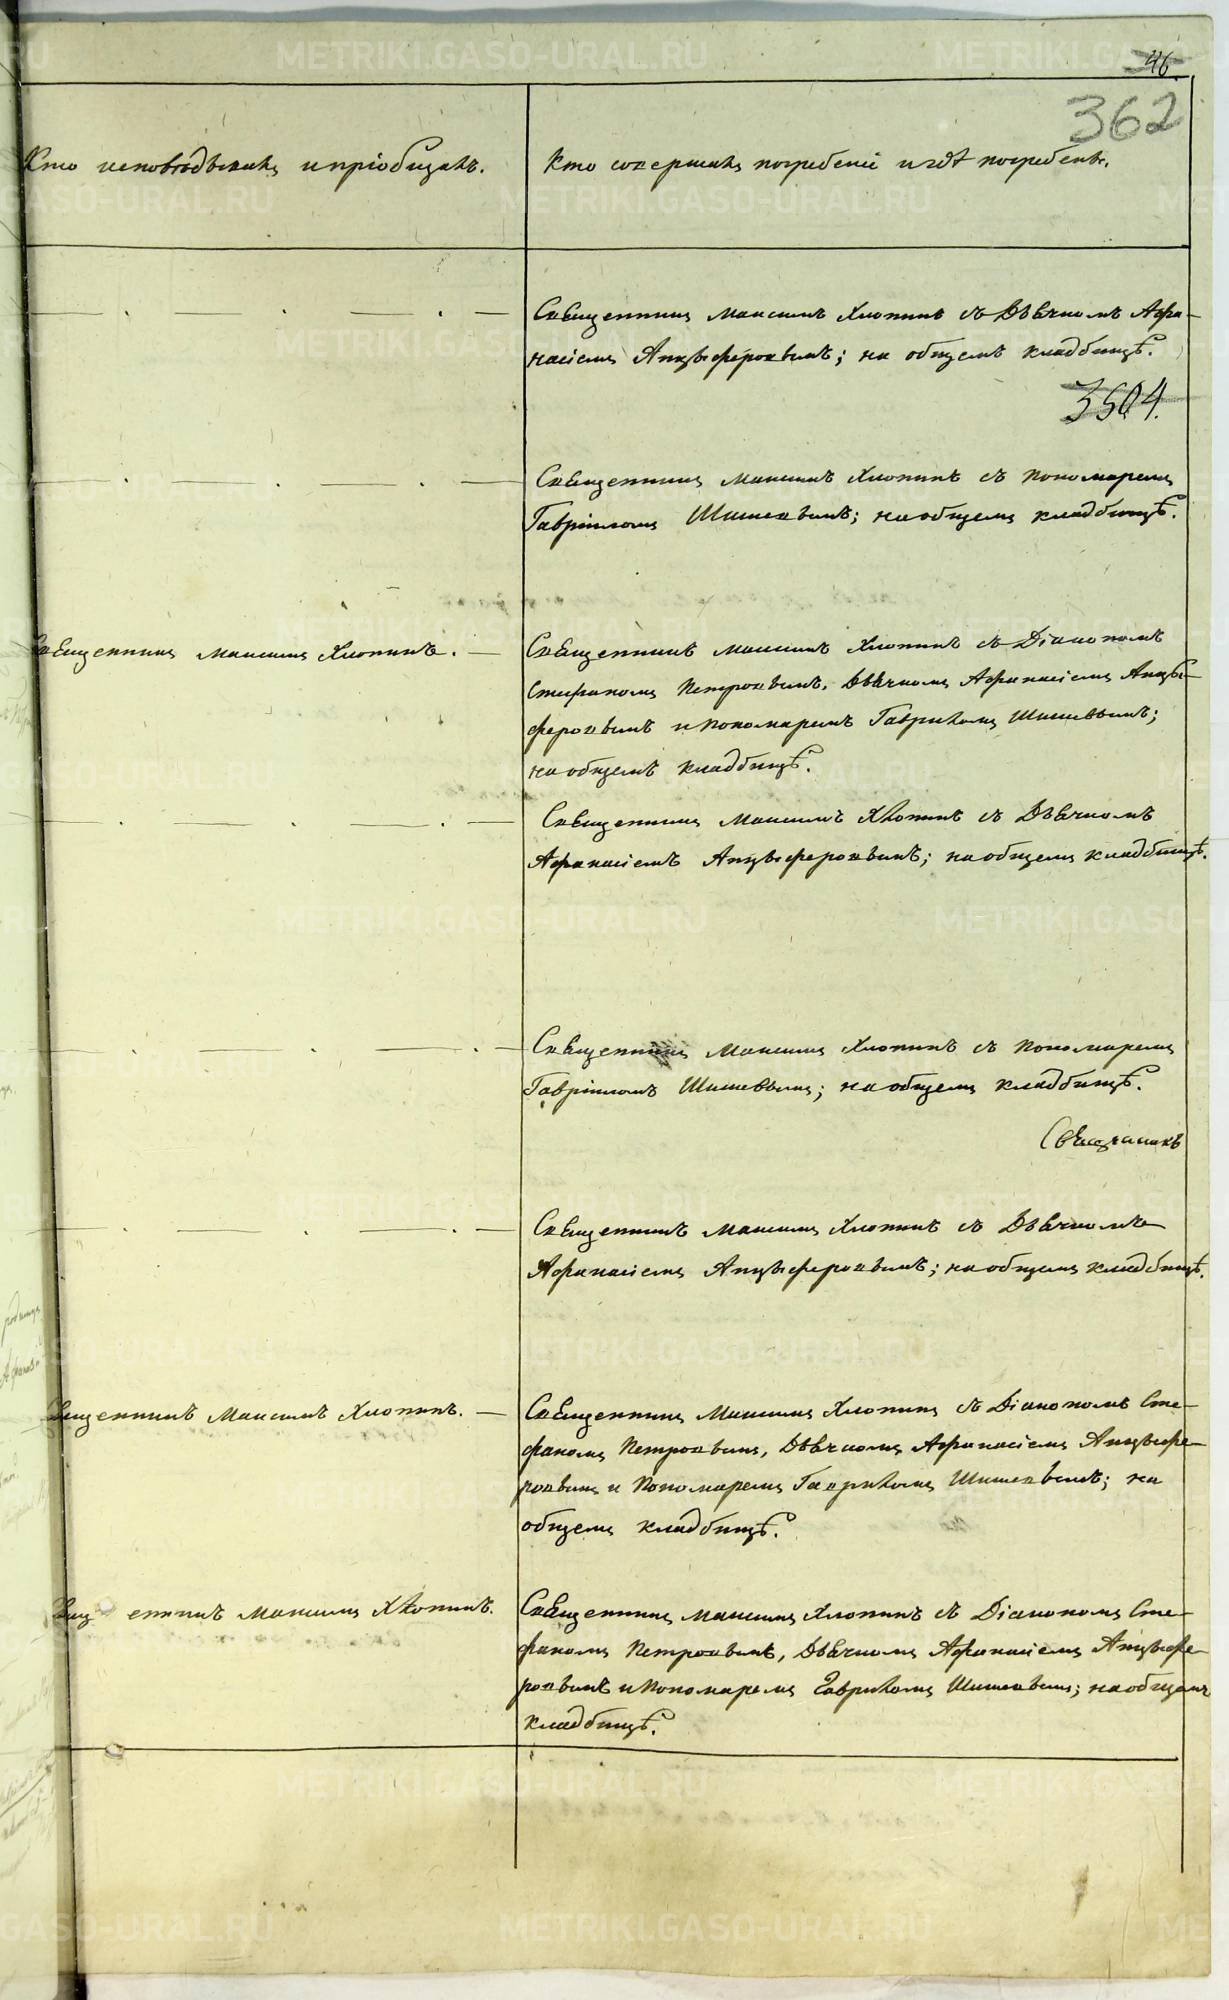 46
362
Кто исповѣдывалъ и пріобщалъ.
Кто совершалъ погребеніе и гдѣ погребенъ.
Священникъ Максимъ Хлопинъ съ Дьячкомъ Афа-
насіемъ Анцыферовымъ; на общемъ кладбищѣ.
3504.
Священникъ Максимъ Хлопинъ съ Пономаремъ
Гавріиломъ Шишевымъ; на общемъ кладбищѣ.
Священникъ Максимъ Хлопинъ.
Священникъ Максимъ Хлопинъ съ Діакономъ
Стефаномъ Петровымъ, Дьячкомъ Афанасіемъ Анцы-
феровымъ и Пономаремъ Гавриломъ Шишевымъ;
на общемъ кладбищѣ.
Священникъ Максимъ Хлопинъ съ Дьячкомъ
Афанасіемъ Анцыферовымъ; на общемъ кладбищѣ.
Священникъ Максимъ Хлопинъ съ Пономаремъ
Гавріиломъ Шишевымъ; на общемъ кладбищѣ.
Священникъ
Священникъ Максимъ Хлопинъ съ Дьячкомъ
Афанасіемъ Анцыферовымъ; на общемъ кладбищѣ.
Священникъ Максимъ Хлопинъ.
Священникъ Максимъ Хлопинъ съ Діакономъ Сте-
фаномъ Петровымъ, Дьячкомъ Афанасіемъ Анцыфе-
ровымъ и Пономаремъ Гавриломъ Шишевымъ; на
общемъ кладбищѣ.
Священникъ Максимъ Хлопинъ.
Священникъ Максимъ Хлопинъ съ Діакономъ Сте-
фаномъ Петровымъ, Дьячкомъ Афанасіемъ Анцыфе-
ровымъ и Пономаремъ Гавриломъ Шишевымъ; на общемъ
кладбищѣ.
METRIKI.GASO-URAL.RU